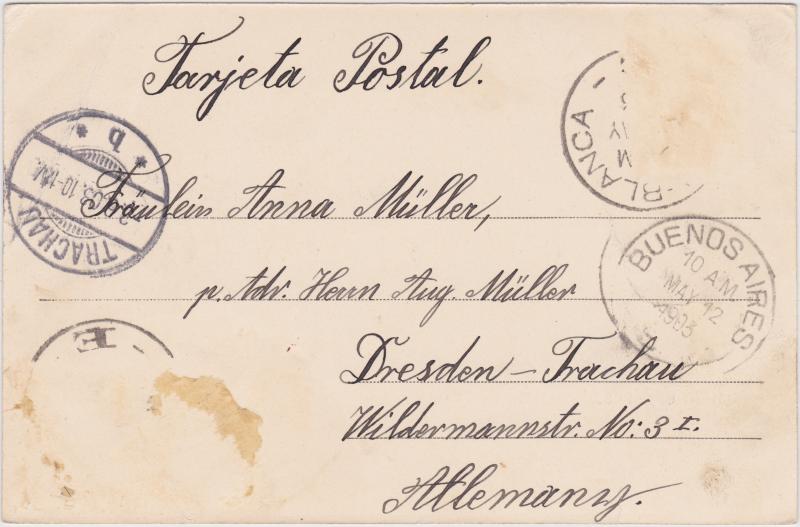 Tarjeta Postal.
Fräulein Anna Müller,
p. Adr. Herrn Aug. Müller
Dresden – Trachau
Wildermannstr. No: 3 I.
Allemany.
TRACHAU
* b *
03. 10-11V.
BLANCA -
BUENOS AIRES
10 A.M
MAY 12
1903
- E